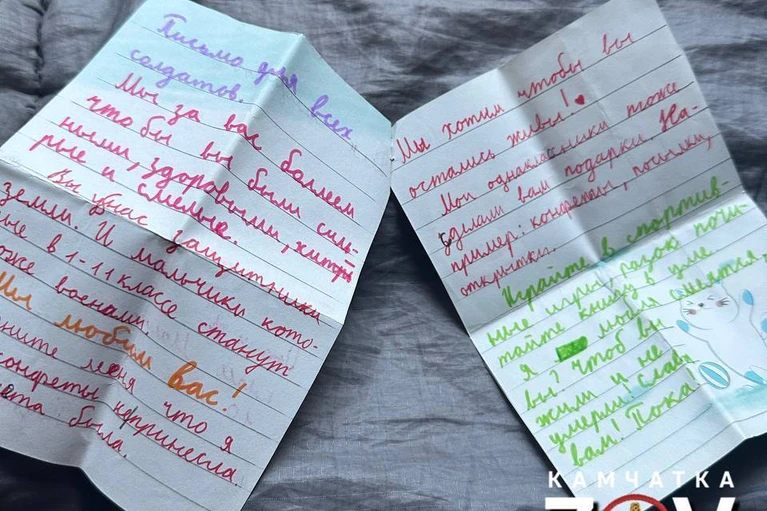 Письмо для всех
солдатов.
Мы за вас болеем
что бы вы были силь-
ными, здоровыми, хитры
рые и смелые.
Вы у нас защитники
земли. И мальчики кото-
рые в 1-11 классе станут
тоже военами
Мы любим вас!
меня что я
конфеты непринесла
была.
Мы хотим чтобы вы
остались живы!
Мои однаклассники тоже
сделали вам подарки. На-
пример: конфеты, посылки,
открытки.
Играйте в спортив-
ные игры разок почи-
тайте книгу,
я моли
вы? чтоб вы
жили и не
умерли слава
вам! Пока
КАМЧАТКА
ZOV